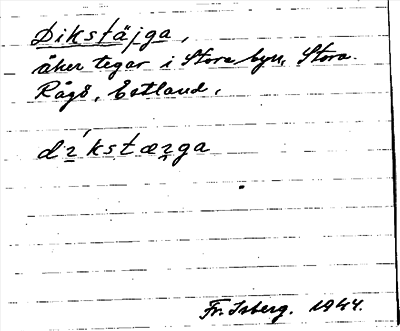 Dikstäjga,
åker tegar i Stora byn, Stora
Rågö, Estland.
dı́kstæıga
Fr. Isberg. 1944.